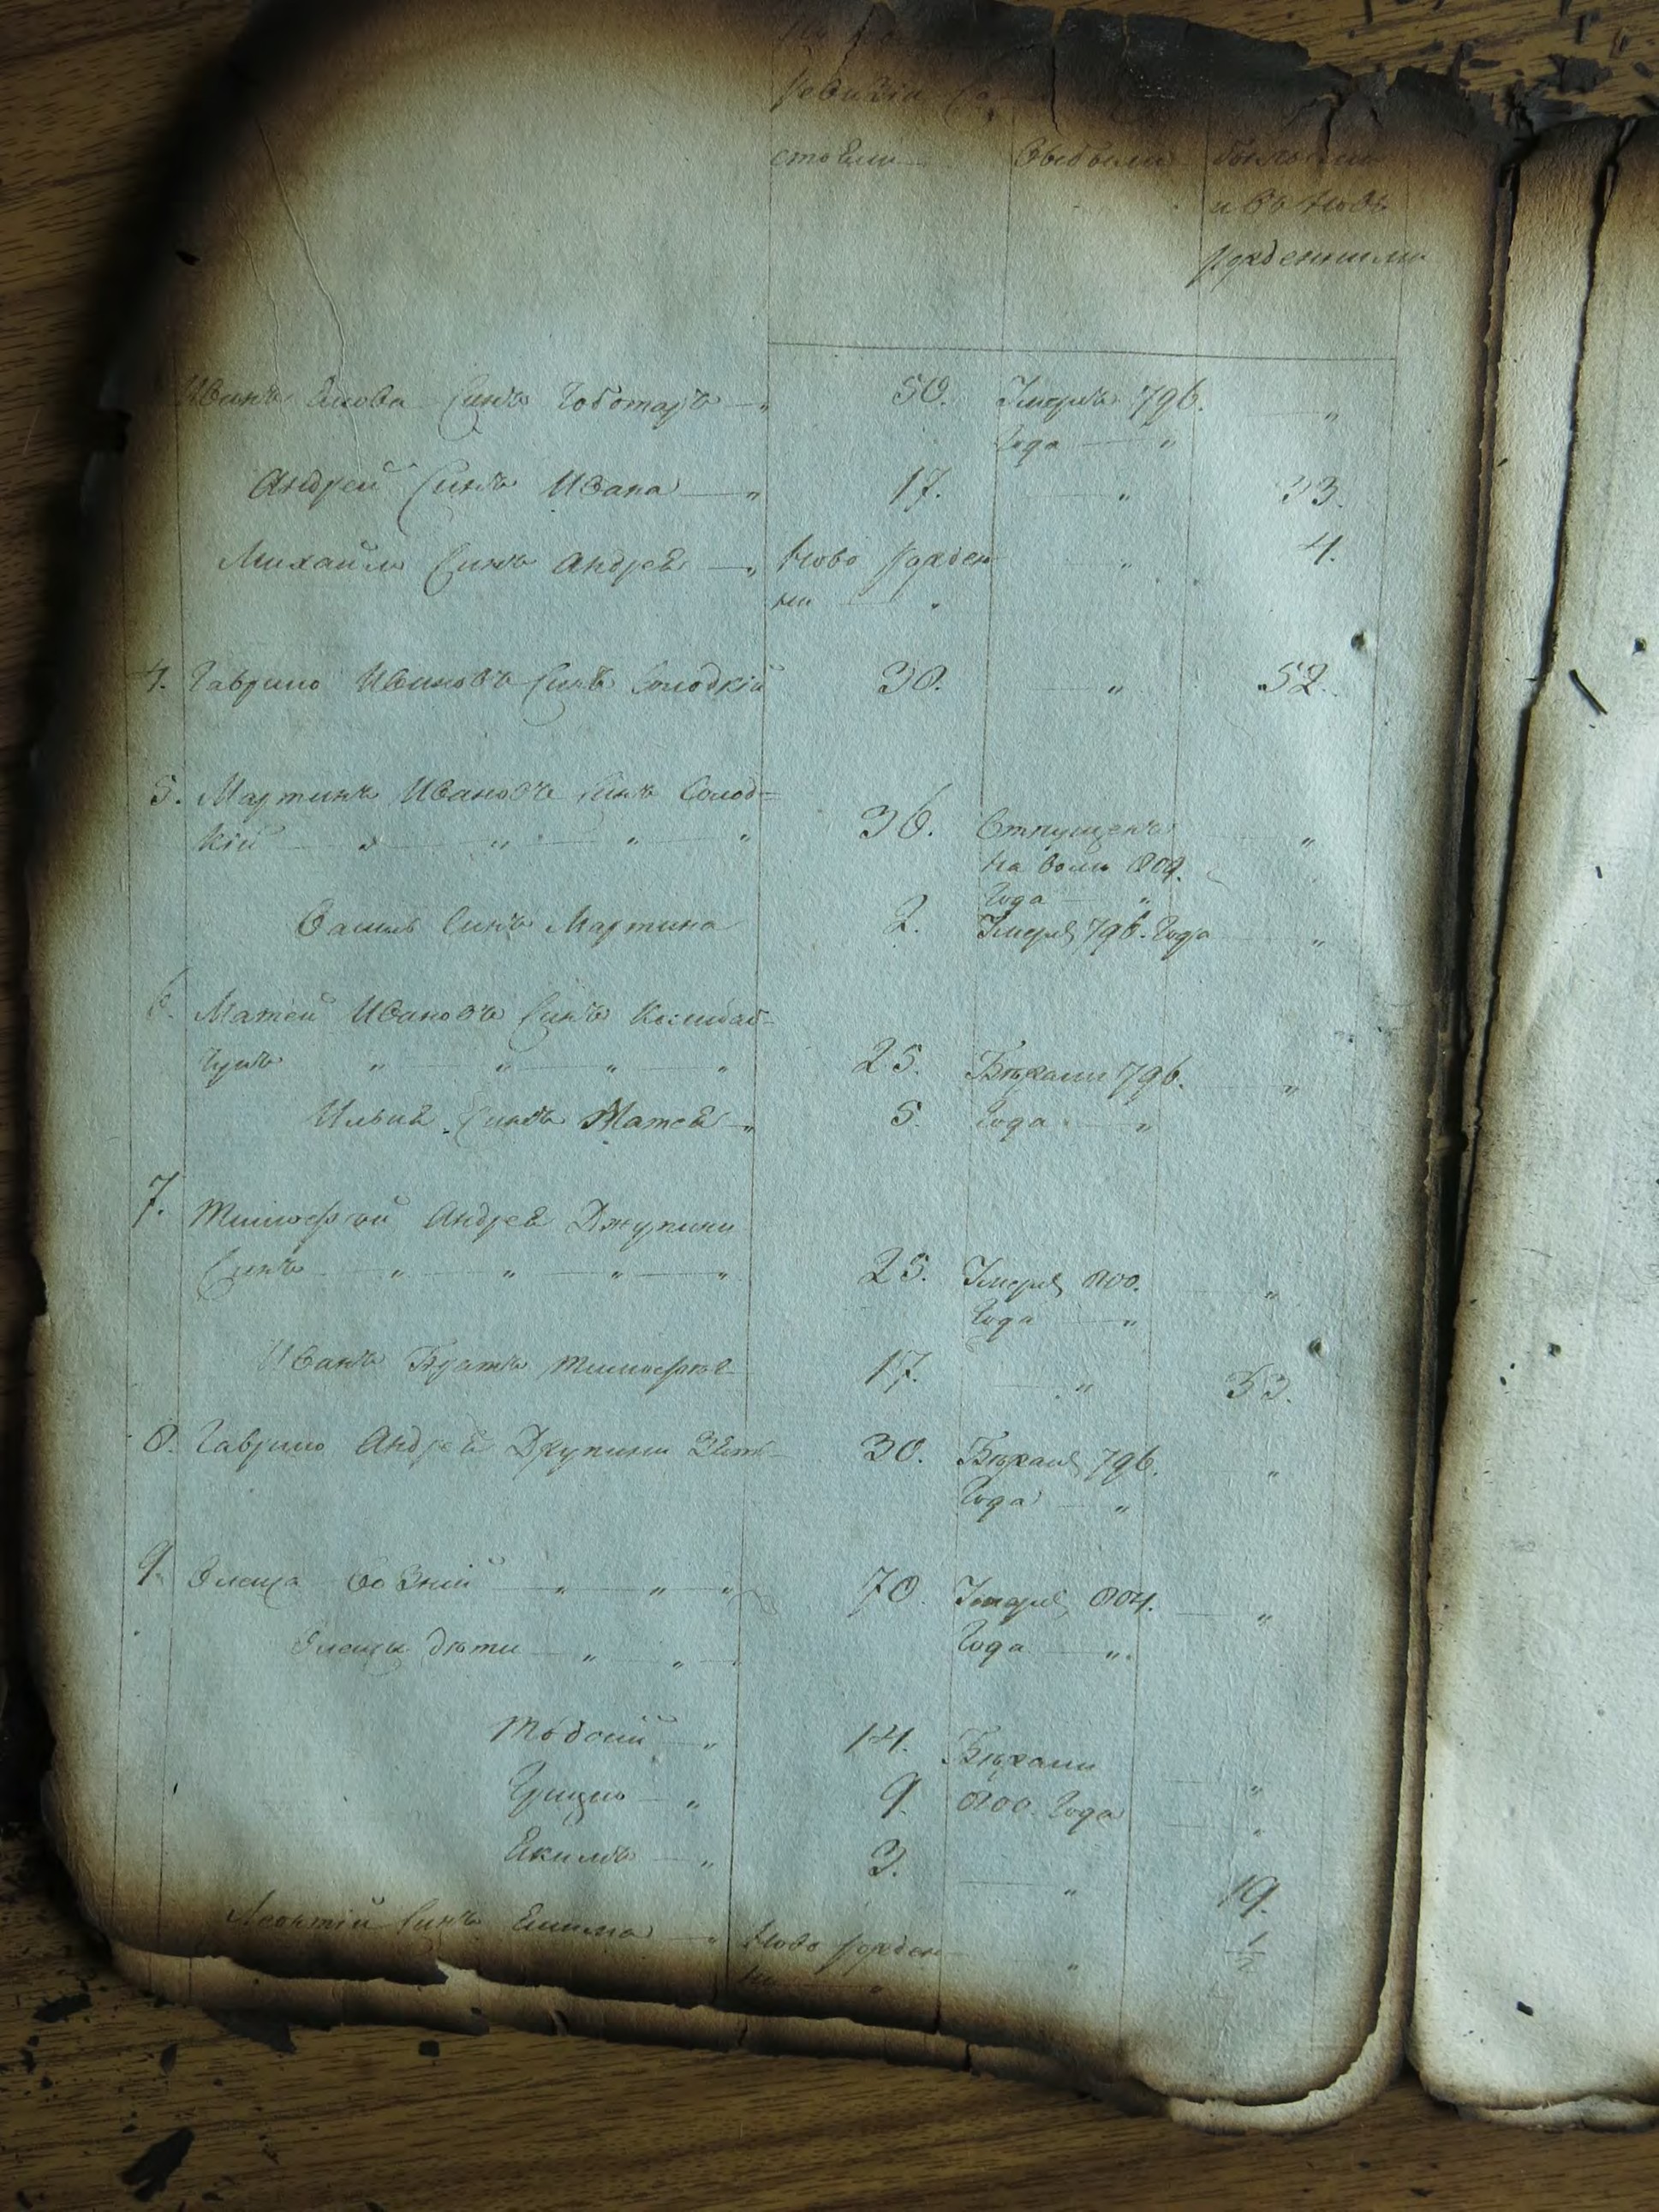 ревизіи
стояли Выбыли
и въ ново
рожденными
Иванъ Синъ Чоботаръ — „ 50. Умеръ 796. — „
Года — „
Андрей Синъ Ивана — „ 17. — „ 33.
Михайло Синъ Андрея — „ Ново рожден — „ 4.
ни — „
4. Гаврило Ивановъ Синъ Солодкій 30. — „ 52.
5. Мартинъ Ивановъ Синъ Солод=
кій — „ — „ — „ — „ 36. Отпущенъ — „
на волю 809.
Года — „
Василь Синъ Мартина 2. Умеръ 796. Года — „
6. Матей Ивановъ Синъ
„ — „ — „ — „ 25. Бѣжали 796. — „
Илья Синъ Матея — „ 5. Года — „
7. Тимофей Андрея Джупини
Синъ — „ — „ — „ — „ 25. Умеръ 800. — „
Года — „
Иванъ Братъ Тимофея 17. — „ 33.
8. Гаврило Андрея Джупини Зять — 30. Бѣжалъ 796. — „
Года — „
9. Олекса — „ — „ — „ 70. Умеръ 804. — „
Олексы дѣти — „ — „ — Года — „
— „ 14. Бѣжали — „
Грицко — „ 9. 800. Года — „
Екимъ — „ 3. — „ 19.
Леонтій Синъ Екима — „ Ново рожден — „ 1/2
ни — „